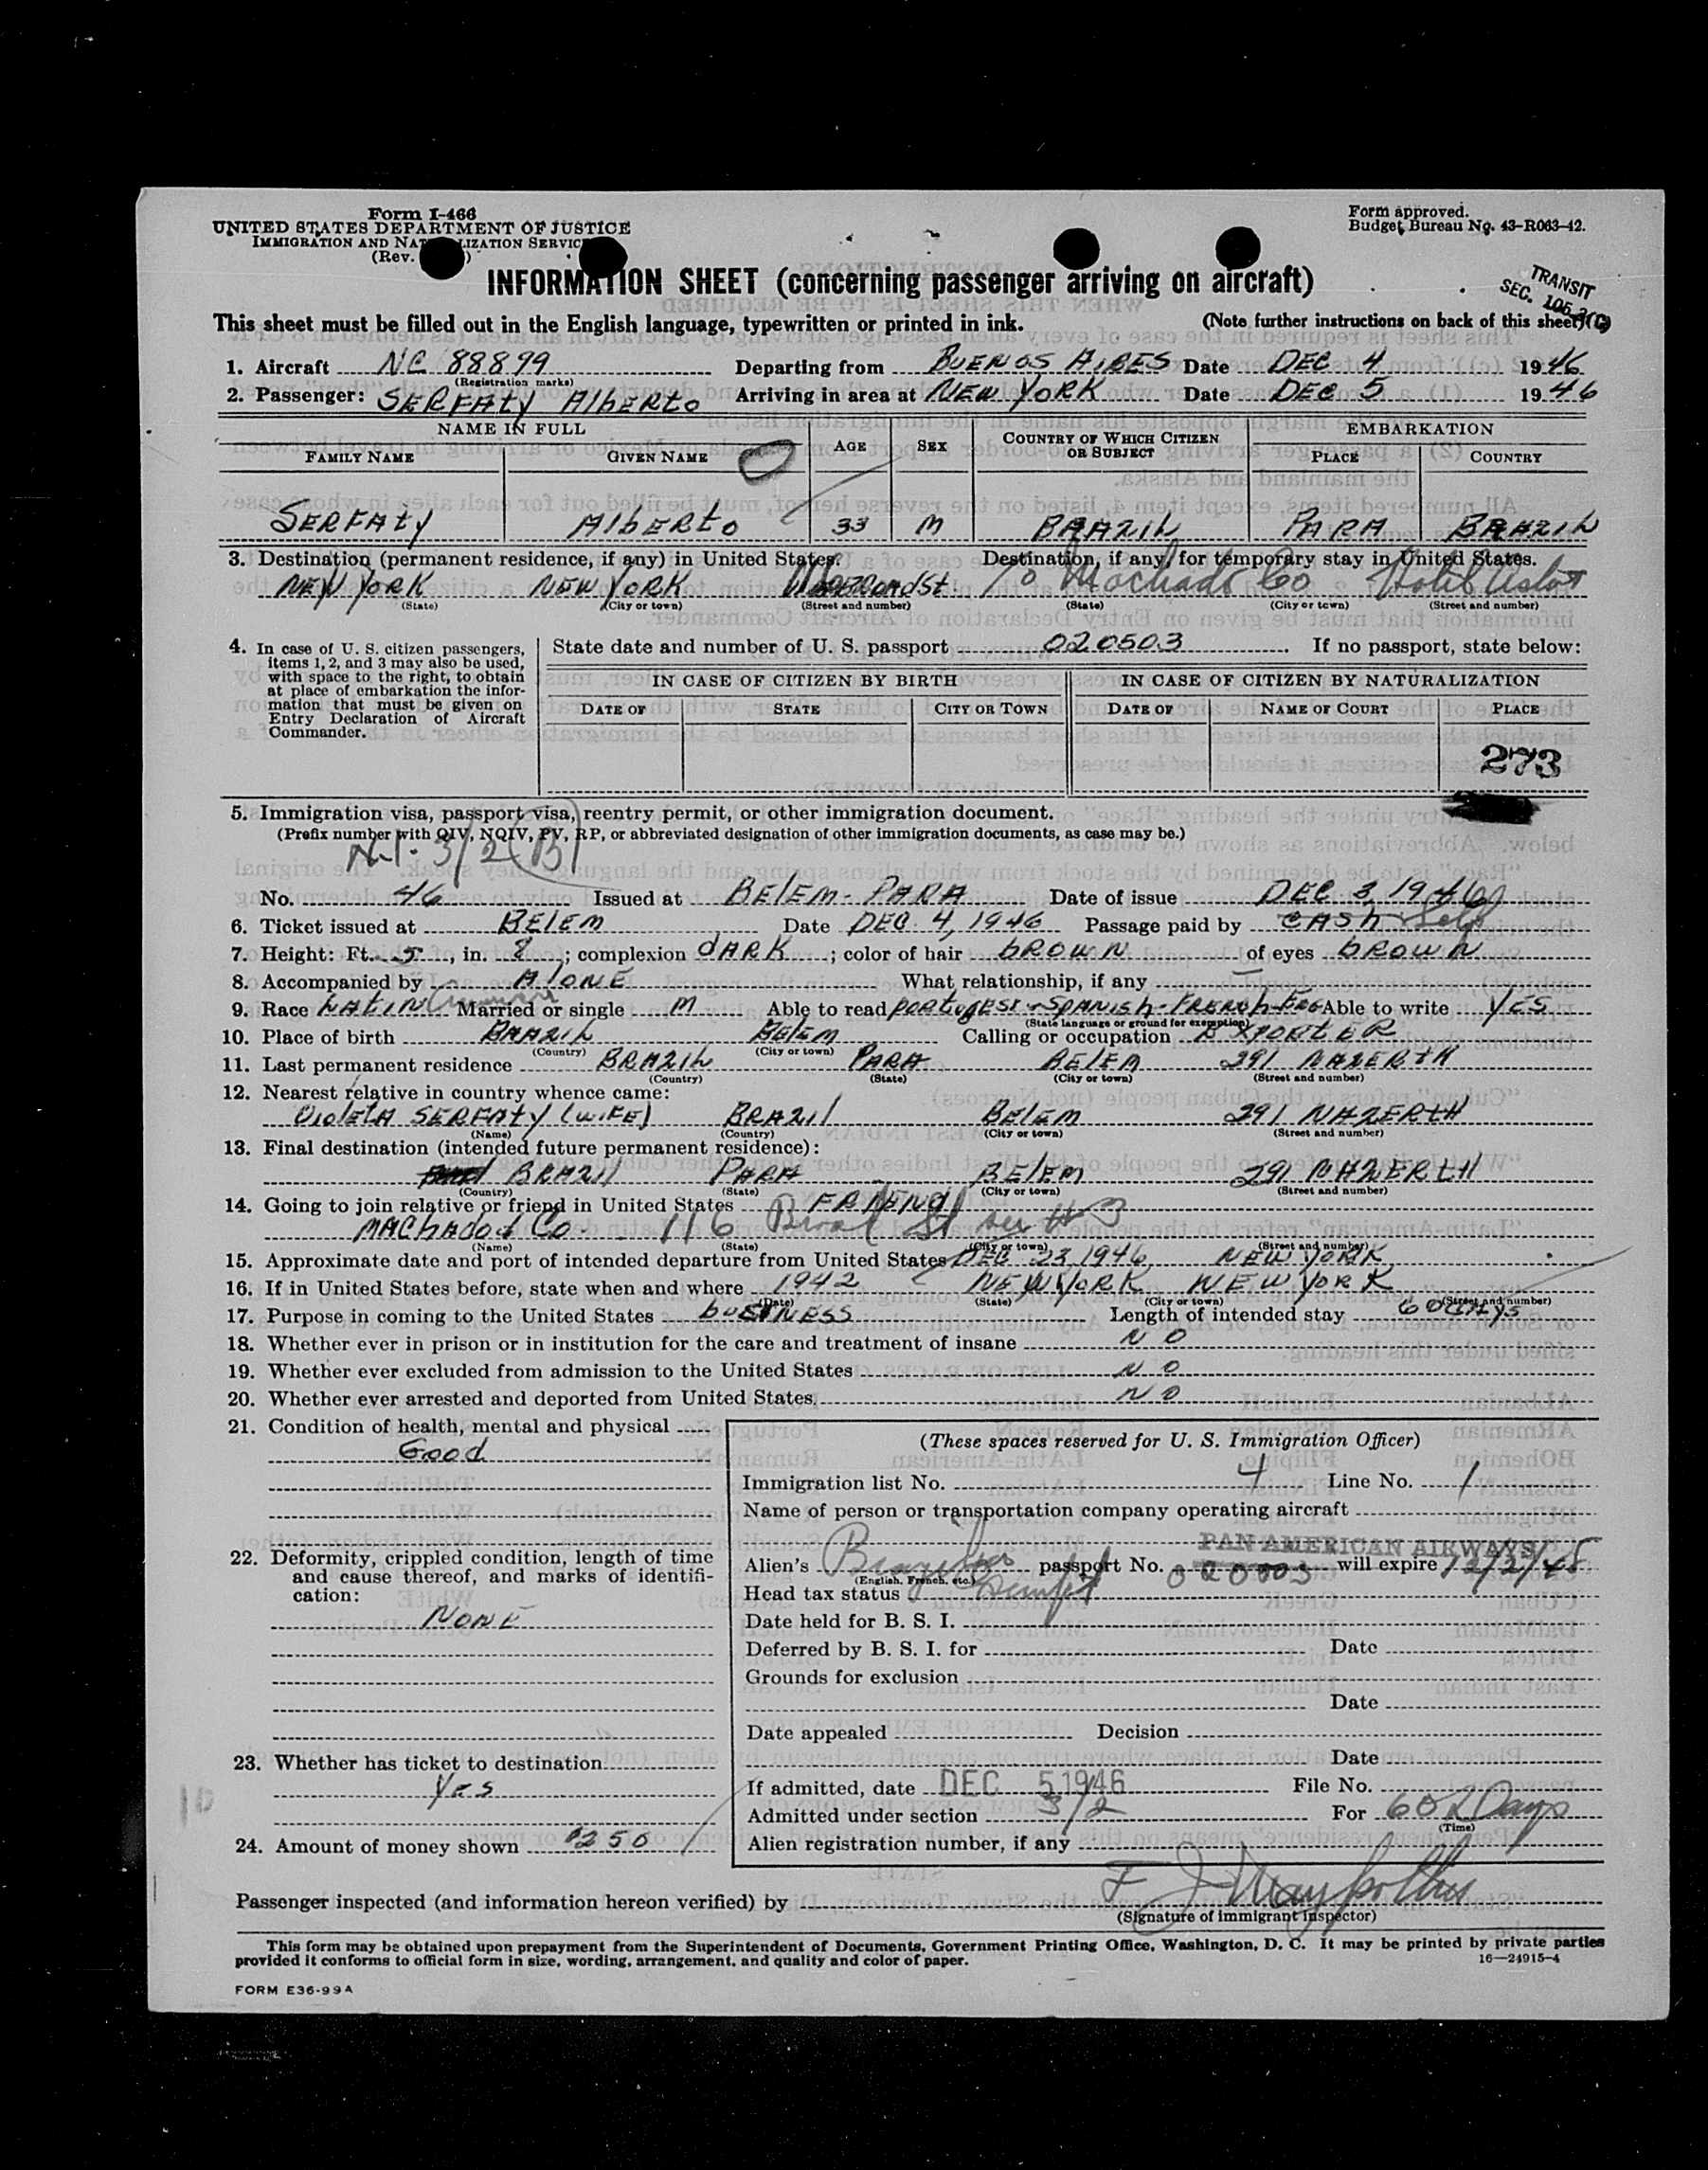 Form I-466
UNITED STATES DEPARTMENT OF JUSTICE
IMMIGRATION AND NATURALIZATION SERVICE
(Rev. )
Form approved.
Budget Bureau No. 43-R063-42.
INFORMATION SHEET (concerning passenger arriving on aircraft)
TRANSIT
SEC. 105.3(C)
This sheet must be filled out in the English language, typewritten or printed in ink. (Note further instructions on back of this sheet)
1. Aircraft NC 88899 Departing from BUENOS AIRES Date DEC 4 1946
(Registration marks)
2. Passenger: SERFAty AlbERto Arriving in area at NEW YORK Date DEC 5 1946
NAME IN FULL AGE SEX COUNTRY OF WHICH CITIZEN OR SUBJECT EMBARKATION
FAMILY NAME GIVEN NAME PLACE COUNTRY
SERFAty AlbERto 33 M BRAZIL PARA BRAZIL
3. Destination (permanent residence, if any) in United States. Destination, if any, for temporary stay in United States.
NEW YORK NEW YORK c/o Machado Co Hotel Astor
(State) (City or town) (Street and number) (State) (City or town) (Street and number)
4. In case of U. S. citizen passengers, items 1, 2, and 3 may also be used, with space to the right, to obtain at place of embarkation the information that must be given on Entry Declaration of Aircraft Commander.
State date and number of U. S. passport 020503 If no passport, state below:
IN CASE OF CITIZEN BY BIRTH IN CASE OF CITIZEN BY NATURALIZATION
DATE OF STATE CITY OR TOWN DATE OF NAME OF COURT PLACE
273
5. Immigration visa, passport visa, reentry permit, or other immigration document.
(Prefix number with QIV, NQIV, PV, RP, or abbreviated designation of other immigration documents, as case may be.)
3/2 (B)
No. 46 Issued at BELEM - PARA Date of issue DEC 3, 1946
6. Ticket issued at BELEM Date DEC. 4, 1946 Passage paid by CASH Self
7. Height: Ft. 5, in. 8; complexion DARK; color of hair BROWN of eyes BROWN
8. Accompanied by AlONE What relationship, if any
9. Race LATIN Married or single M Able to read PORTUGESE - SPANISH - FRENCH - ENG Able to write YES
(State language or ground for exemption)
10. Place of birth BRAZIL BELEM Calling or occupation EXPORTER
(Country) (City or town)
11. Last permanent residence BRAZIL PARA BELEM 291 NAZERTH
(Country) (State) (City or town) (Street and number)
12. Nearest relative in country whence came:
VIOLETA SERFATY (WIFE) BRAZIL BELEM 291 NAZERTH
(Name) (Country) (City or town) (Street and number)
13. Final destination (intended future permanent residence):
BRAZIL PARA BELEM 291 NAZERTH
(Country) (State) (City or town) (Street and number)
14. Going to join relative or friend in United States FRIEND
MACHADO & CO. 116 Broad St see #3
(Name) (State) (City or town) (Street and number)
15. Approximate date and port of intended departure from United States DEC 23, 1946, NEW YORK
16. If in United States before, state when and where 1942 NEW YORK NEW YORK
(Date) (State) (City or town) (Street and number)
17. Purpose in coming to the United States BUSINESS Length of intended stay 60 days
18. Whether ever in prison or in institution for the care and treatment of insane NO
19. Whether ever excluded from admission to the United States NO
20. Whether ever arrested and deported from United States. NO
21. Condition of health, mental and physical
Good
(These spaces reserved for U. S. Immigration Officer)
Immigration list No. 4 Line No. 1
Name of person or transportation company operating aircraft
PAN AMERICAN AIRWAYS
22. Deformity, crippled condition, length of time and cause thereof, and marks of identification:
NONE
Alien's Brazilian passport No. 020503 will expire 12/2/48
(English, French, etc.)
Head tax status Exempt
Date held for B. S. I.
Deferred by B. S. I. for Date
Grounds for exclusion
Date
Date appealed Decision
Date
23. Whether has ticket to destination
Yes
If admitted, date DEC 5 1946 File No.
Admitted under section 3/2 For 60 Days
(Time)
24. Amount of money shown $250
Alien registration number, if any
Passenger inspected (and information hereon verified) by
(Signature of immigrant inspector)
This form may be obtained upon prepayment from the Superintendent of Documents, Government Printing Office, Washington, D. C. It may be printed by private parties
provided it conforms to official form in size, wording, arrangement, and quality and color of paper.
16—24915-4
FORM E36-99A